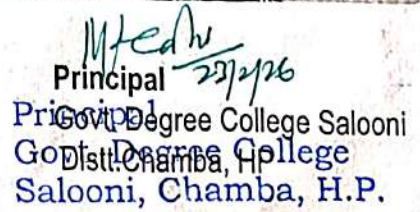 23/2/26
Principal
Govt. Degree College Salooni
Distt. Chamba, HP
Principal
Govt. Degree College
Salooni, Chamba, H.P.